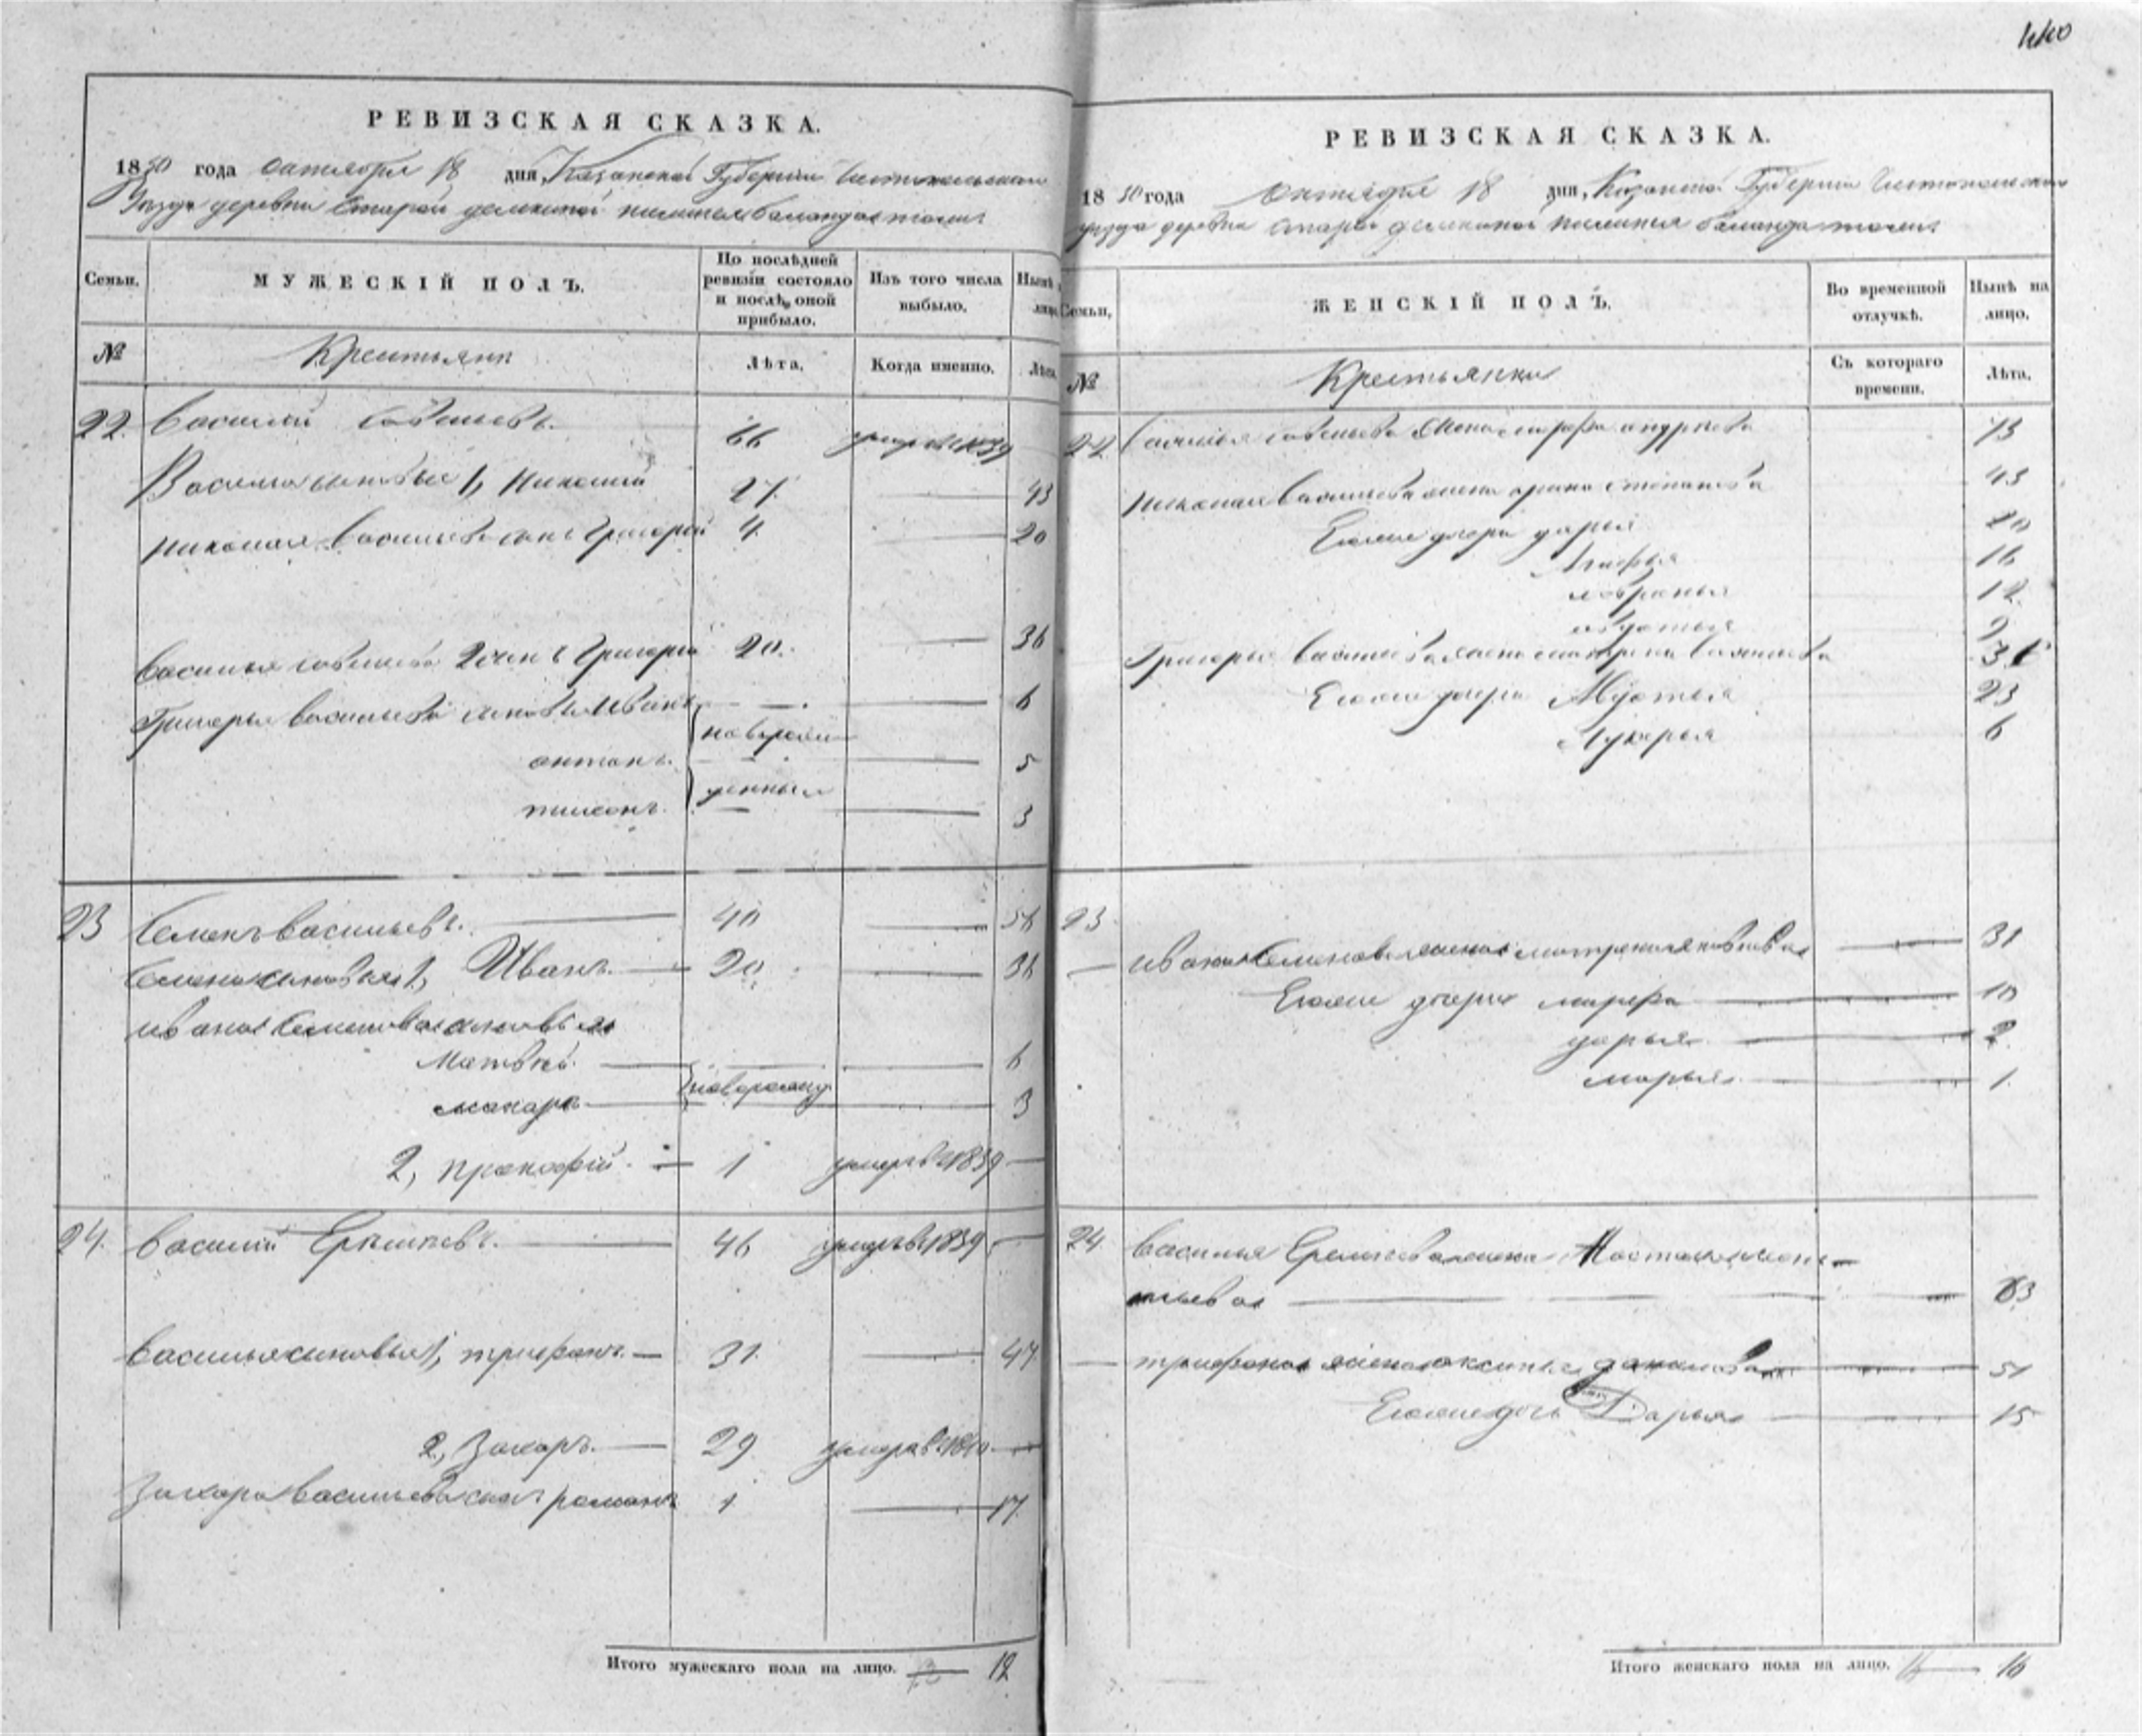 440
РЕВИЗСКАЯ СКАЗКА.
1850 года октября 18 дня, Казанской Губернии Чистопольскаго
Уезда деревни Старой
Семьи.
МУЖЕСКІЙ ПОЛЪ.
По послѣдней ревизіи состояло и послѣ оной прибыло.
Изъ того числа выбыло.
Нынѣ на лицо.
№
Крестьяне
Лѣта.
Когда именно.
Лѣта.
22. Василий Савельевъ. 66 умеръ в 1839
Василья сыновья 1, Николай 27. 43
Николая Васильева сынъ Григорий 4. 20
Василья Савельева 2 сынъ Григорий 20. 36
Григорья Васильева сыновья Иванъ 6
новорож
антонъ. 5
денныя
тихонъ. 3
23 Семенъ Васильевъ. 40 56
Семена сыновья 1, Иванъ. 20. 36
Ивана Семенова сыновья
Матвѣй. 6
новорожд
макаръ 3
2, прокофий. 1 умеръ в 1839
24. Василий Еремеевъ. 46 умеръ в 1839
Василья сыновья 1, трифонъ. 31. 47
2, Захаръ. 29. умеръ в 1840
Захара Васильева сынъ романъ 1 17.
Итого мужескаго пола на лицо. 12
РЕВИЗСКАЯ СКАЗКА.
1850 года Октября 18 дня, Казанской Губернии Чистопольскаго
уезда деревни старой
Семьи.
ЖЕНСКІЙ ПОЛЪ.
Во временной отлучкѣ.
Нынѣ на лицо.
№
Крестьянки
Съ котораго времени.
Лѣта.
22 Василья Савельева жена 73
Николая Васильева жена арина степанова 43
Ево же дочери дарья 20
Агафья 16
12.
9
Григорья Васильева жена Васильева
Ево же дочери Авдотья 23
Лукерья 6
23. Ивана Семенова жена матрена 31
Ево же дочери марфа 10
дарья 2.
марья. 1.
24. Василья Еремеева жена Настасья
63
трифона жена аксинья данилова 51
Ево же дочь Дарья 15
Итого женскаго пола на лицо. 16